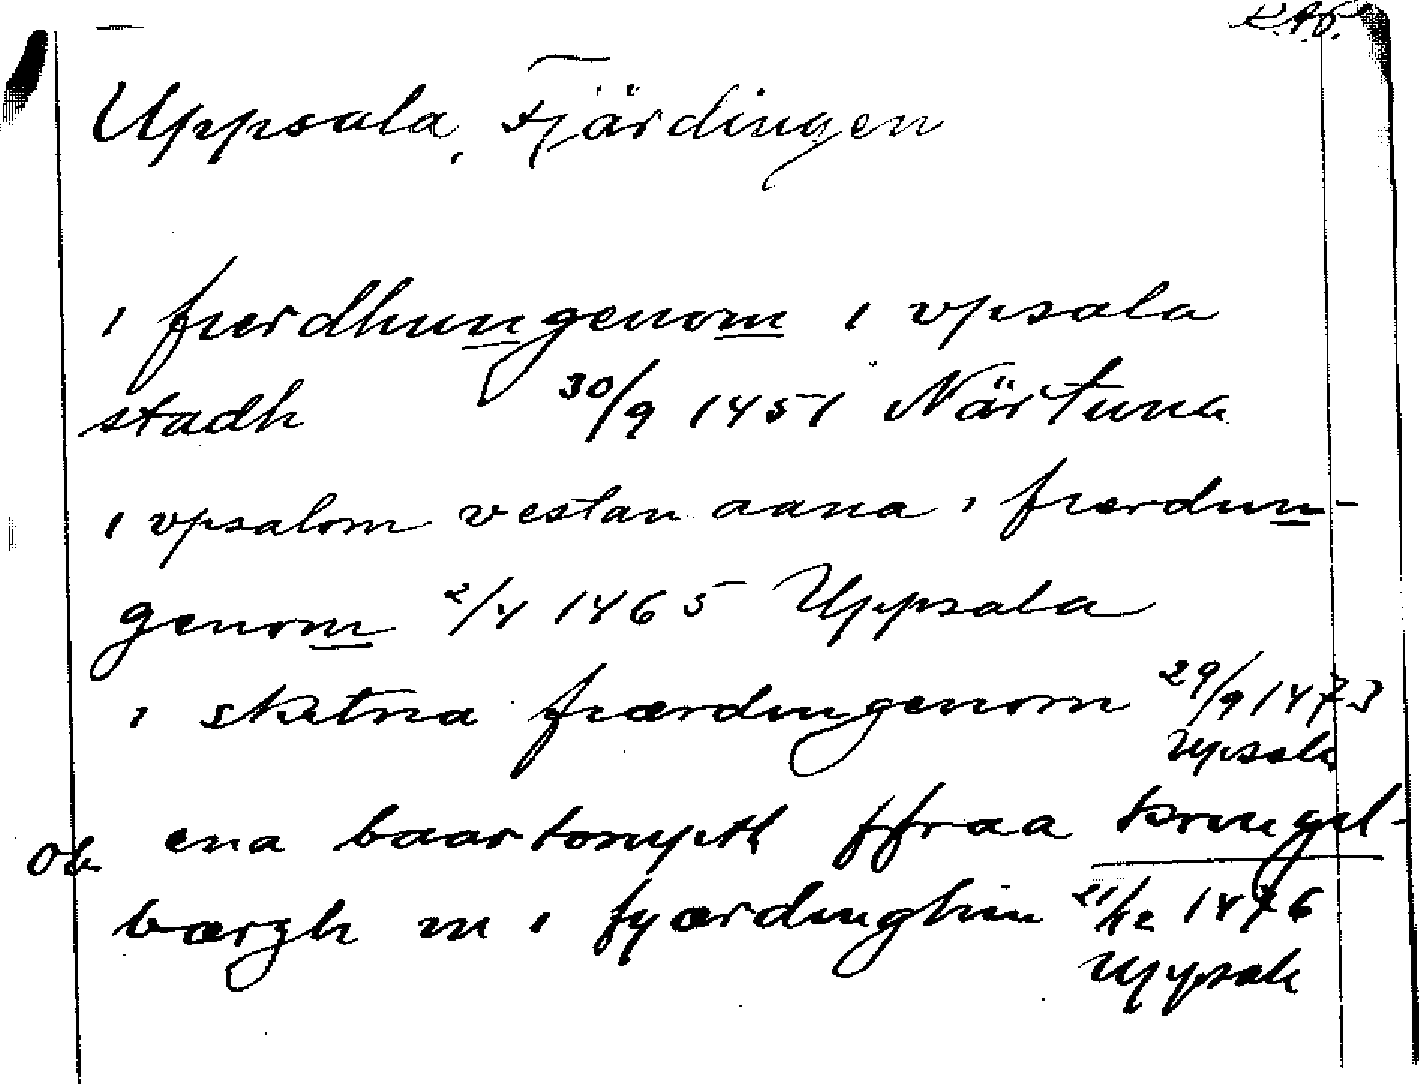 R.A.P.
Uppsala, Fjärdingen
ı fierdhungenom ı vpsala
stadh 30/9 1451 Närtuna
ı vpsalom vestan aana ı fierdun-
genom 2/4 1465 Uppsala
ı skitna fiærdungenom 29/9 1473
Upsala
Ob ena baar tompth ffraa
bærgh in ı fyærdinghin 21/12 1476
Uppsala